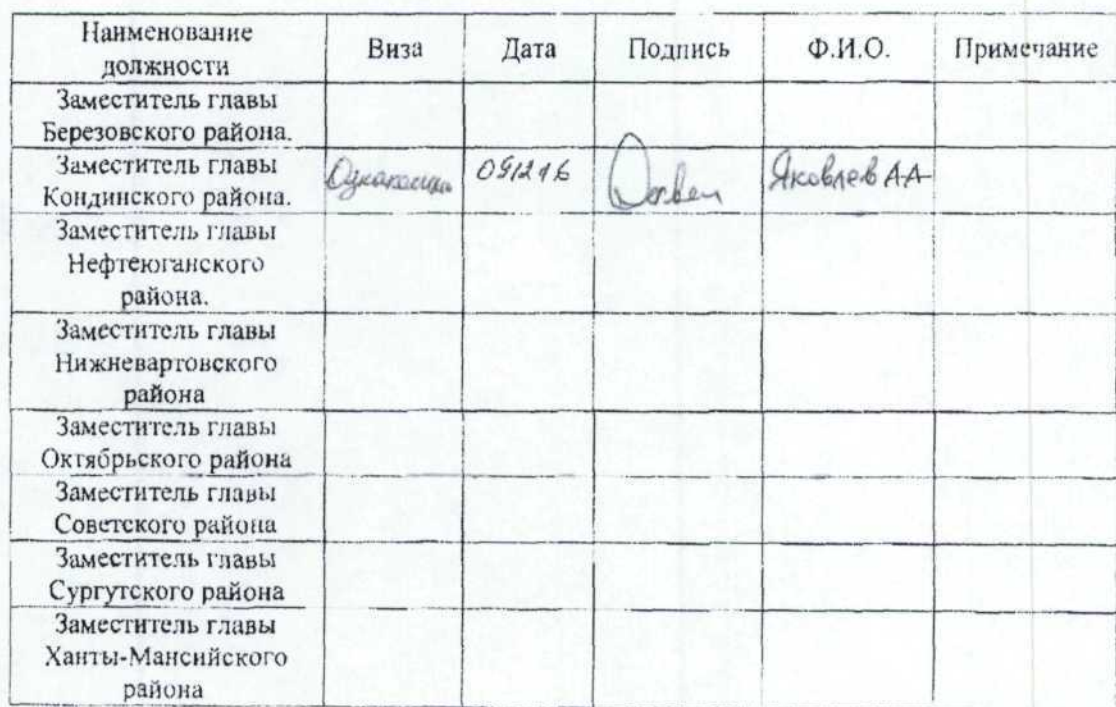 Наименование должности Виза Дата Подпись Ф.И.О. Примечание
Заместитель главы
Березовского района.
Заместитель главы
Кондинского района. 091216 Яковлев АА
Заместитель главы
Нефтеюганского
района.
Заместитель главы
Нижневартовского
района
Заместитель главы
Октябрьского района
Заместитель главы
Советского района
Заместитель главы
Сургутского района
Заместитель главы
Ханты-Мансийского
района